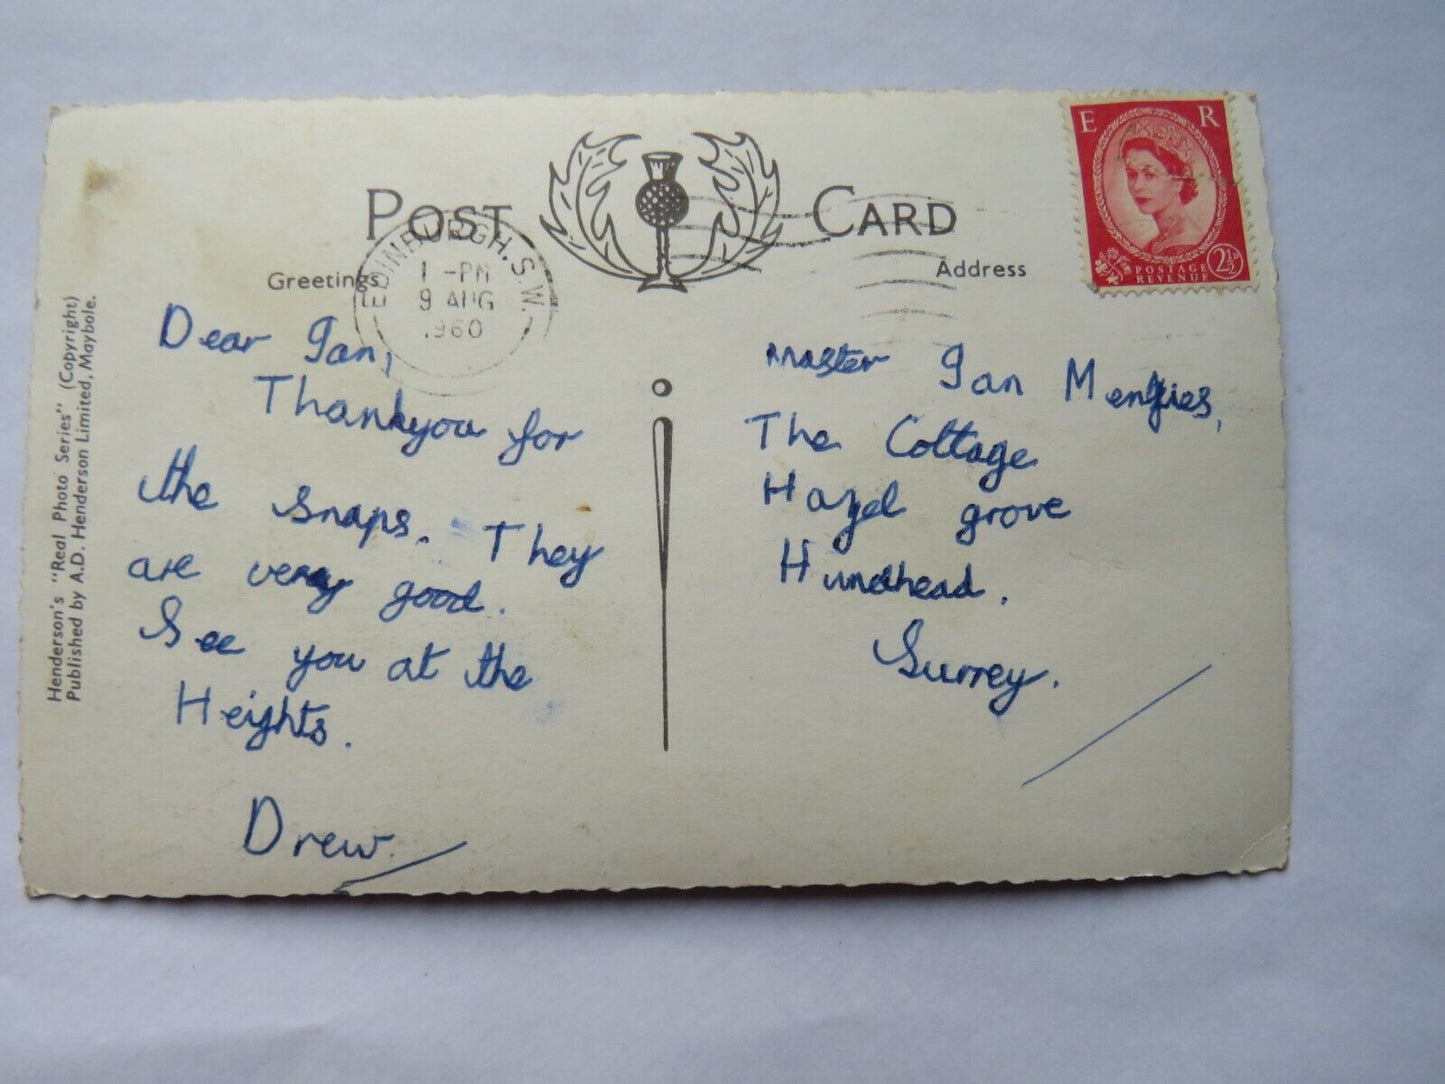 POST CARD
Greetings
Address
EDINBURGH. S.W.
1 -PM
9 AUG
1960
E R
POSTAGE
REVENUE
2½D
Henderson's "Real Photo Series" (Copyright)
Published by A.D. Henderson Limited, Maybole.
Dear Ian,
Thankyou for
the snaps. They
are very good.
See you at the
Heights.
Drew.
Master Ian Menzies,
The Cottage
Hazel grove
Hindhead.
Surrey.